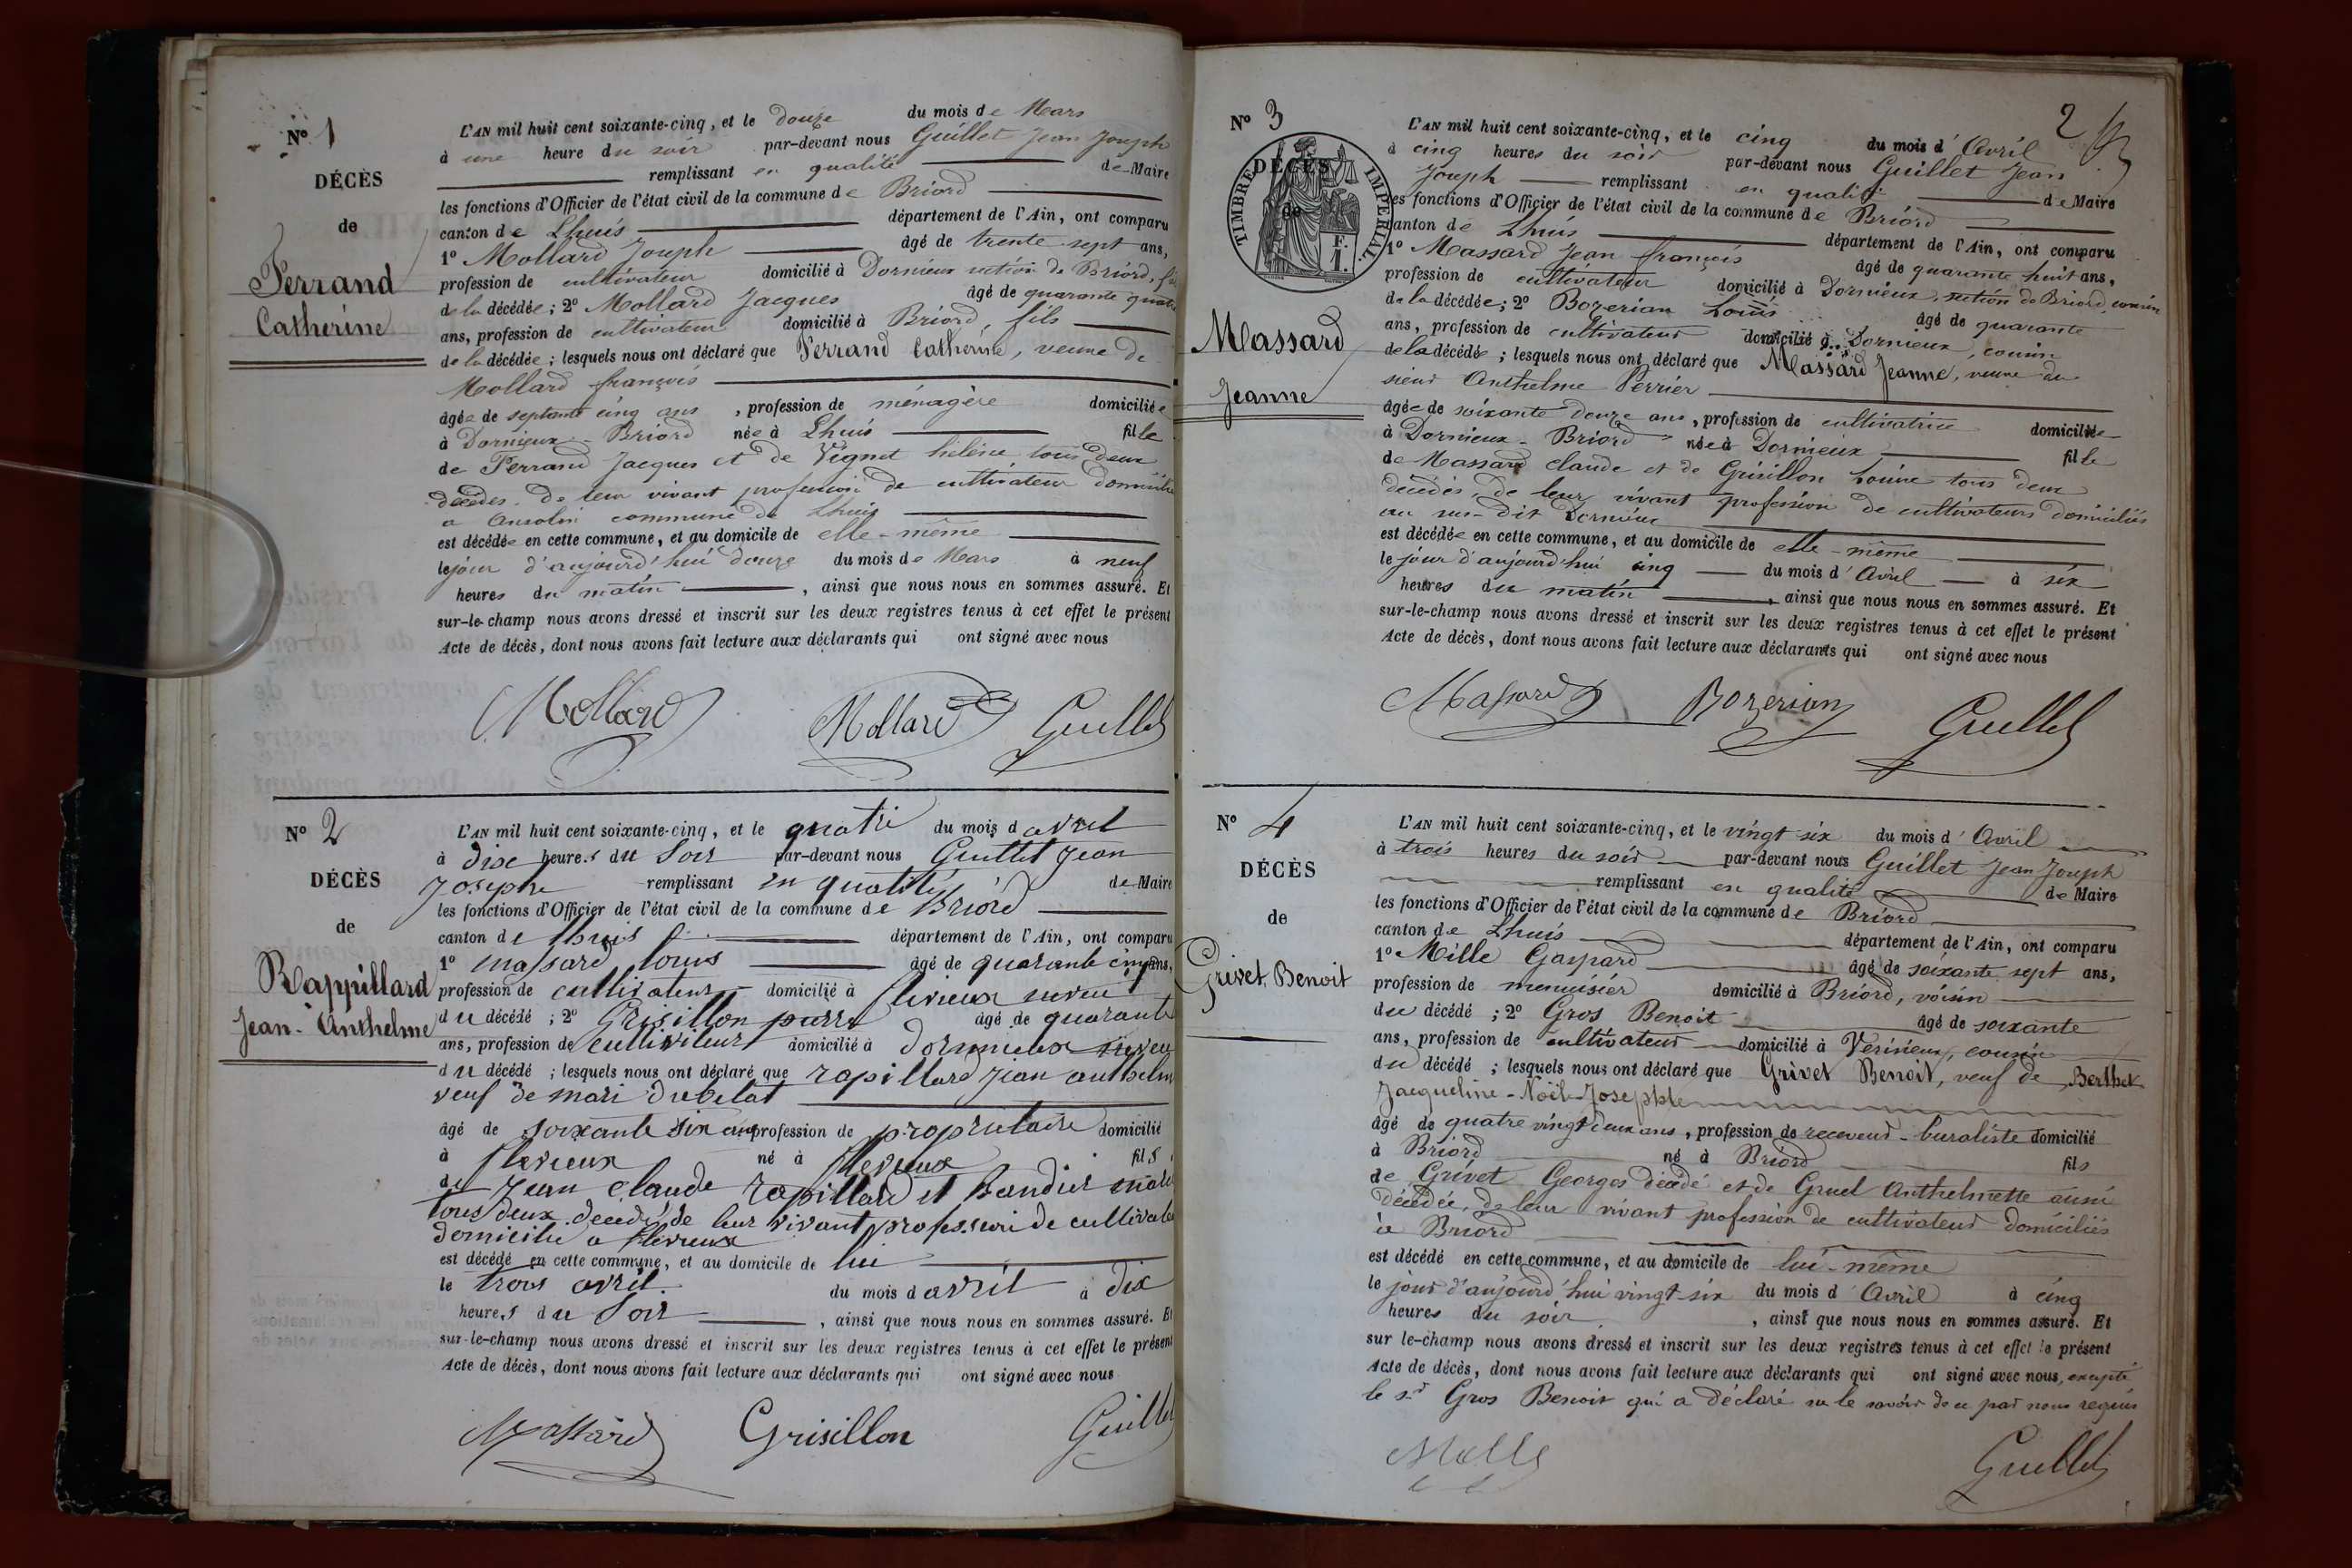 N° 1
DÉCÈS
de
Ferrand
Catherine
L'AN mil huit cent soixante-cinq, et le douze du mois de Mars
à une heure du soir par-devant nous Guillet Jean Joseph
remplissant en qualité de Maire
les fonctions d'Officier de l'état civil de la commune de Briord
canton de Lhuis département de l'Ain, ont comparu
1° Mollard Joseph âgé de trente-sept ans,
profession de cultivateur domicilié à Dornieux section de Briord, fils
de la décédée; 2° Mollard Jacques âgé de quarante quatre
ans, profession de cultivateur domicilié à Briord, fils
de la décédée; lesquels nous ont déclaré que Ferrand Catherine, veuve de
Mollard françois
âgée de septante cinq ans, profession de ménagère domiciliée
à Dornieux - Briord née à Lhuis fille
de Ferrand Jacques et de Vignet hélène tous deux
décédés. de leur vivant profession de cultivateur domicilié
a Ansolin commune de Lhuis
est décédée en cette commune, et au domicile de elle-même
le jour d'aujourd'hui douze du mois de Mars à neuf
heures du matin, ainsi que nous nous en sommes assuré. Et
sur-le-champ nous avons dressé et inscrit sur les deux registres tenus à cet effet le présent
Acte de décès, dont nous avons fait lecture aux déclarants qui ont signé avec nous
Mollard Mollard Guillet
N° 2
DÉCÈS
de
Rappillard
Jean-Anthelme
L'AN mil huit cent soixante-cinq, et le quatre du mois d avril
à dixe heures du Soir par-devant nous Guillet Jean
Josephe remplissant en qualité de Maire
les fonctions d'Officier de l'état civil de la commune de Briord
canton de lhuis département de l'Ain, ont comparu
1° massard louis âgé de quarante cinq ans,
profession de cultivateur domicilié à flevieux neveu
du décédé; 2° Grisillon pierre âgé de quarante
ans, profession de cultivateur domicilié à dornieux neveu
du décédé; lesquels nous ont déclaré que rapillard jean anthelm
veuf de mari Dubelat
âgé de soixante six ans profession de proprietaire domicilié
à flevieux né à flevieux fils
de Jean claude rapillard et Bandier marie
tous deux decedé de leur vivant professeion de cultivateur
domicilie a flevieux
est décédé en cette commune, et au domicile de lui
le trois avril du mois d avril à dix
heures du Soir, ainsi que nous nous en sommes assuré. Et
sur-le-champ nous avons dressé et inscrit sur les deux registres tenus à cet effet le présent
Acte de décès, dont nous avons fait lecture aux déclarants qui ont signé avec nous
Massard Grisillon Guillet
2
N° 3
DÉCÈS
de
TIMBRE IMPÉRIAL
F.
1.
Massard
Jeanne
L'AN mil huit cent soixante-cinq, et le cinq du mois d'Avril
à cinq heures du soir par-devant nous Guillet Jean
Joseph remplissant en qualité de Maire
les fonctions d'Officier de l'état civil de la commune de Briord
canton de Lhuis département de l'Ain, ont comparu
1° Massard Jean françois âgé de quarante huit ans,
profession de cultivateur domicilié à Dornieux, section de Briord, cousin
de la décédée; 2° Bozerian Louis âgé de quarante
ans, profession de cultivateur domicilié à Dornieux, cousin
de la décédée; lesquels nous ont déclaré que Massard Jeanne, veuve de
sieur Anthelme Perrier
âgée de soixante douze ans, profession de cultivatrice domiciliée
à Dornieux - Briord née à Dornieux fille
de Massard claude et de Grisillon Louise tous deux
décédés, de leur vivant profession de cultivateurs domiciliés
au sus-dit Dornieux
est décédée en cette commune, et au domicile de elle-même
le jour d'aujourd'hui cinq du mois d'Avril à six
heures du matin, ainsi que nous nous en sommes assuré. Et
sur-le-champ nous avons dressé et inscrit sur les deux registres tenus à cet effet le présent
Acte de décès, dont nous avons fait lecture aux déclarants qui ont signé avec nous
Massard Bozerian Guillet
N° 4
DÉCÈS
de
Grivet Benoit
L'AN mil huit cent soixante-cinq, et le vingt-six du mois d'Avril
à trois heures du soir par-devant nous Guillet Jean Joseph
remplissant en qualité de Maire
les fonctions d'Officier de l'état civil de la commune de Briord
canton de Lhuis département de l'Ain, ont comparu
1° Mille Gaspard âgé de soixante sept ans,
profession de menuisier domicilié à Briord, voisin
du décédé; 2° Gros Benoit âgé de soixante
ans, profession de cultivateur domicilié à Vérizieu, cousin
du décédé; lesquels nous ont déclaré que Grivet Benoit, veuf de Berthet
Jacqueline-Noël-Josephte
âgé de quatre vingt deux ans, profession de receveur-buraliste domicilié
à Briord né à Briord fils
de Grivet Georges décédé et de Gruel Anthelmette aussi
décédée, de leur vivant profession de cultivateurs domiciliés
à Briord
est décédé en cette commune, et au domicile de lui-même
le jour d'aujourd'hui vingt-six du mois d'Avril à cinq
heures du soir, ainsi que nous nous en sommes assuré. Et
sur le-champ nous avons dressé et inscrit sur les deux registres tenus à cet effet le présent
Acte de décès, dont nous avons fait lecture aux déclarants qui ont signé avec nous, excepté
le sr Gros Benoit qui a déclaré ne le savoir de ce par nous requis
Mille Guillet